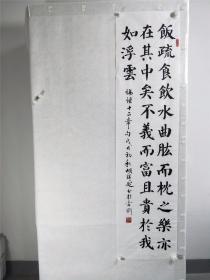 飯疏食飲水曲肱而枕之樂亦
在其中矣不義而富且貴於我
如浮雲